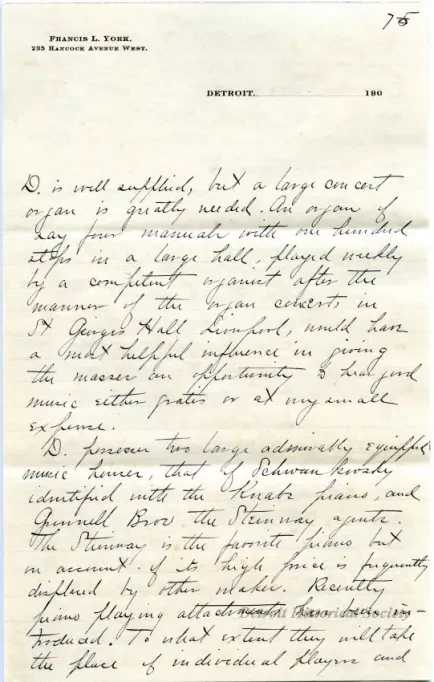 75
FRANCIS L. YORK,
235 HANCOCK AVENUE WEST.
DETROIT, 190
D. is well supplied, but a large concert
organ is greatly needed. An organ of
say four manuals with one hundred
stops in a large hall, played weekly
by a competent organist after the
manner of the organ concerts in
St Georges Hall Liverpool, would have
a most helpful influence in giving
the masses an opportunity to hear good
music either gratis or at very small
expense.
D. possesses two large admirably equipped
music houses, that of Schwankovsky
identified with the Knabe piano, and
Grinnell Bros the Steinway agents.
The Steinway is the favorite piano but
on account of its high price is frequently
displaced by other makes. Recently
piano playing attachments have been in-
troduced. To what extent they will take
the place of individual players and
Detroit Historical Society